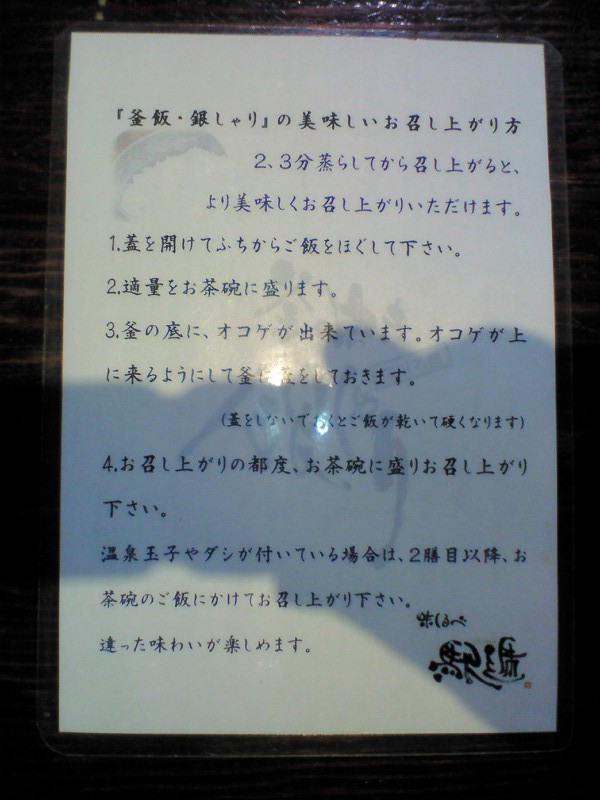 『釜飯・銀しゃり』の美味しいお召し上がり方
2、3分蒸らしてから召し上がると、
より美味しくお召し上がりいただけます。
1.蓋を開けてふちからご飯をほぐして下さい。
2.適量をお茶碗に盛ります。
3.釜の底に、オコゲが出来ています。オコゲが上
に来るようにして釜に蓋をしておきます。
(蓋をしないでおくとご飯が乾いて硬くなります)
4.お召し上がりの都度、お茶碗に盛りお召し上がり
下さい。
温泉玉子やダシが付いている場合は、2膳目以降、お
茶碗のご飯にかけてお召し上がり下さい。
違った味わいが楽しめます。
味しるべ